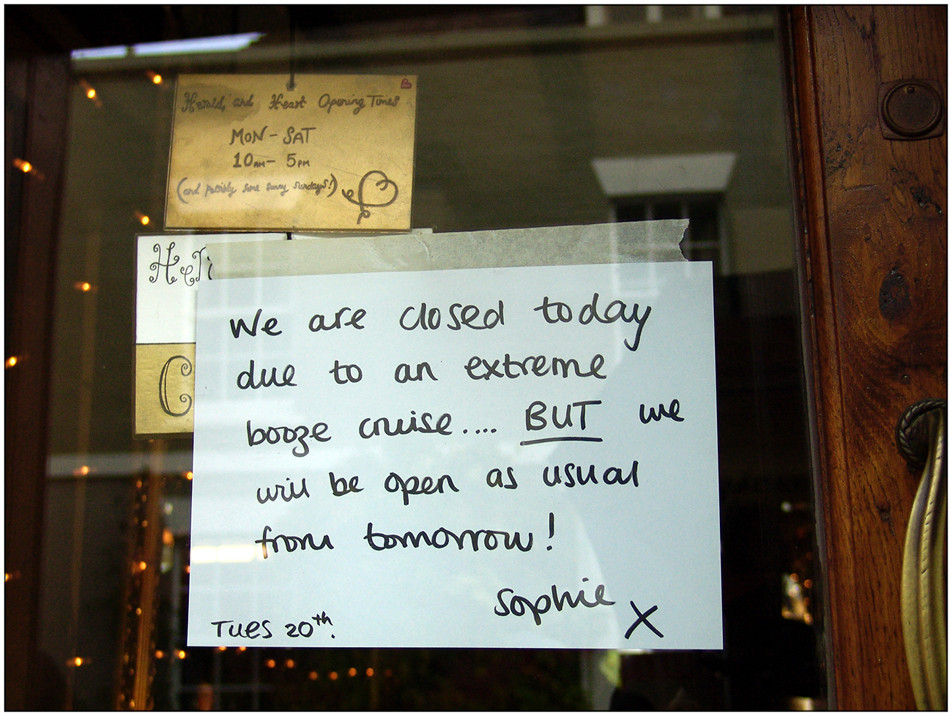 and Heart Opening Times
MON - SAT
10AM - 5PM
(and possibly some sunny sundays!)
We are closed today
due to an extreme
booze cruise.... BUT we
will be open as usual
from tomorrow!
Sophie X
TUES 20th.
C